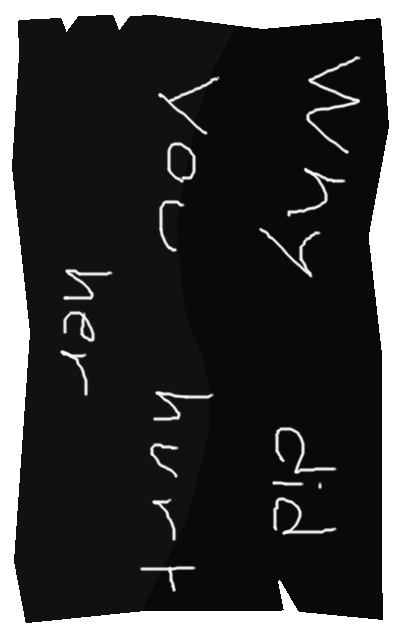 Why did
you hurt
her